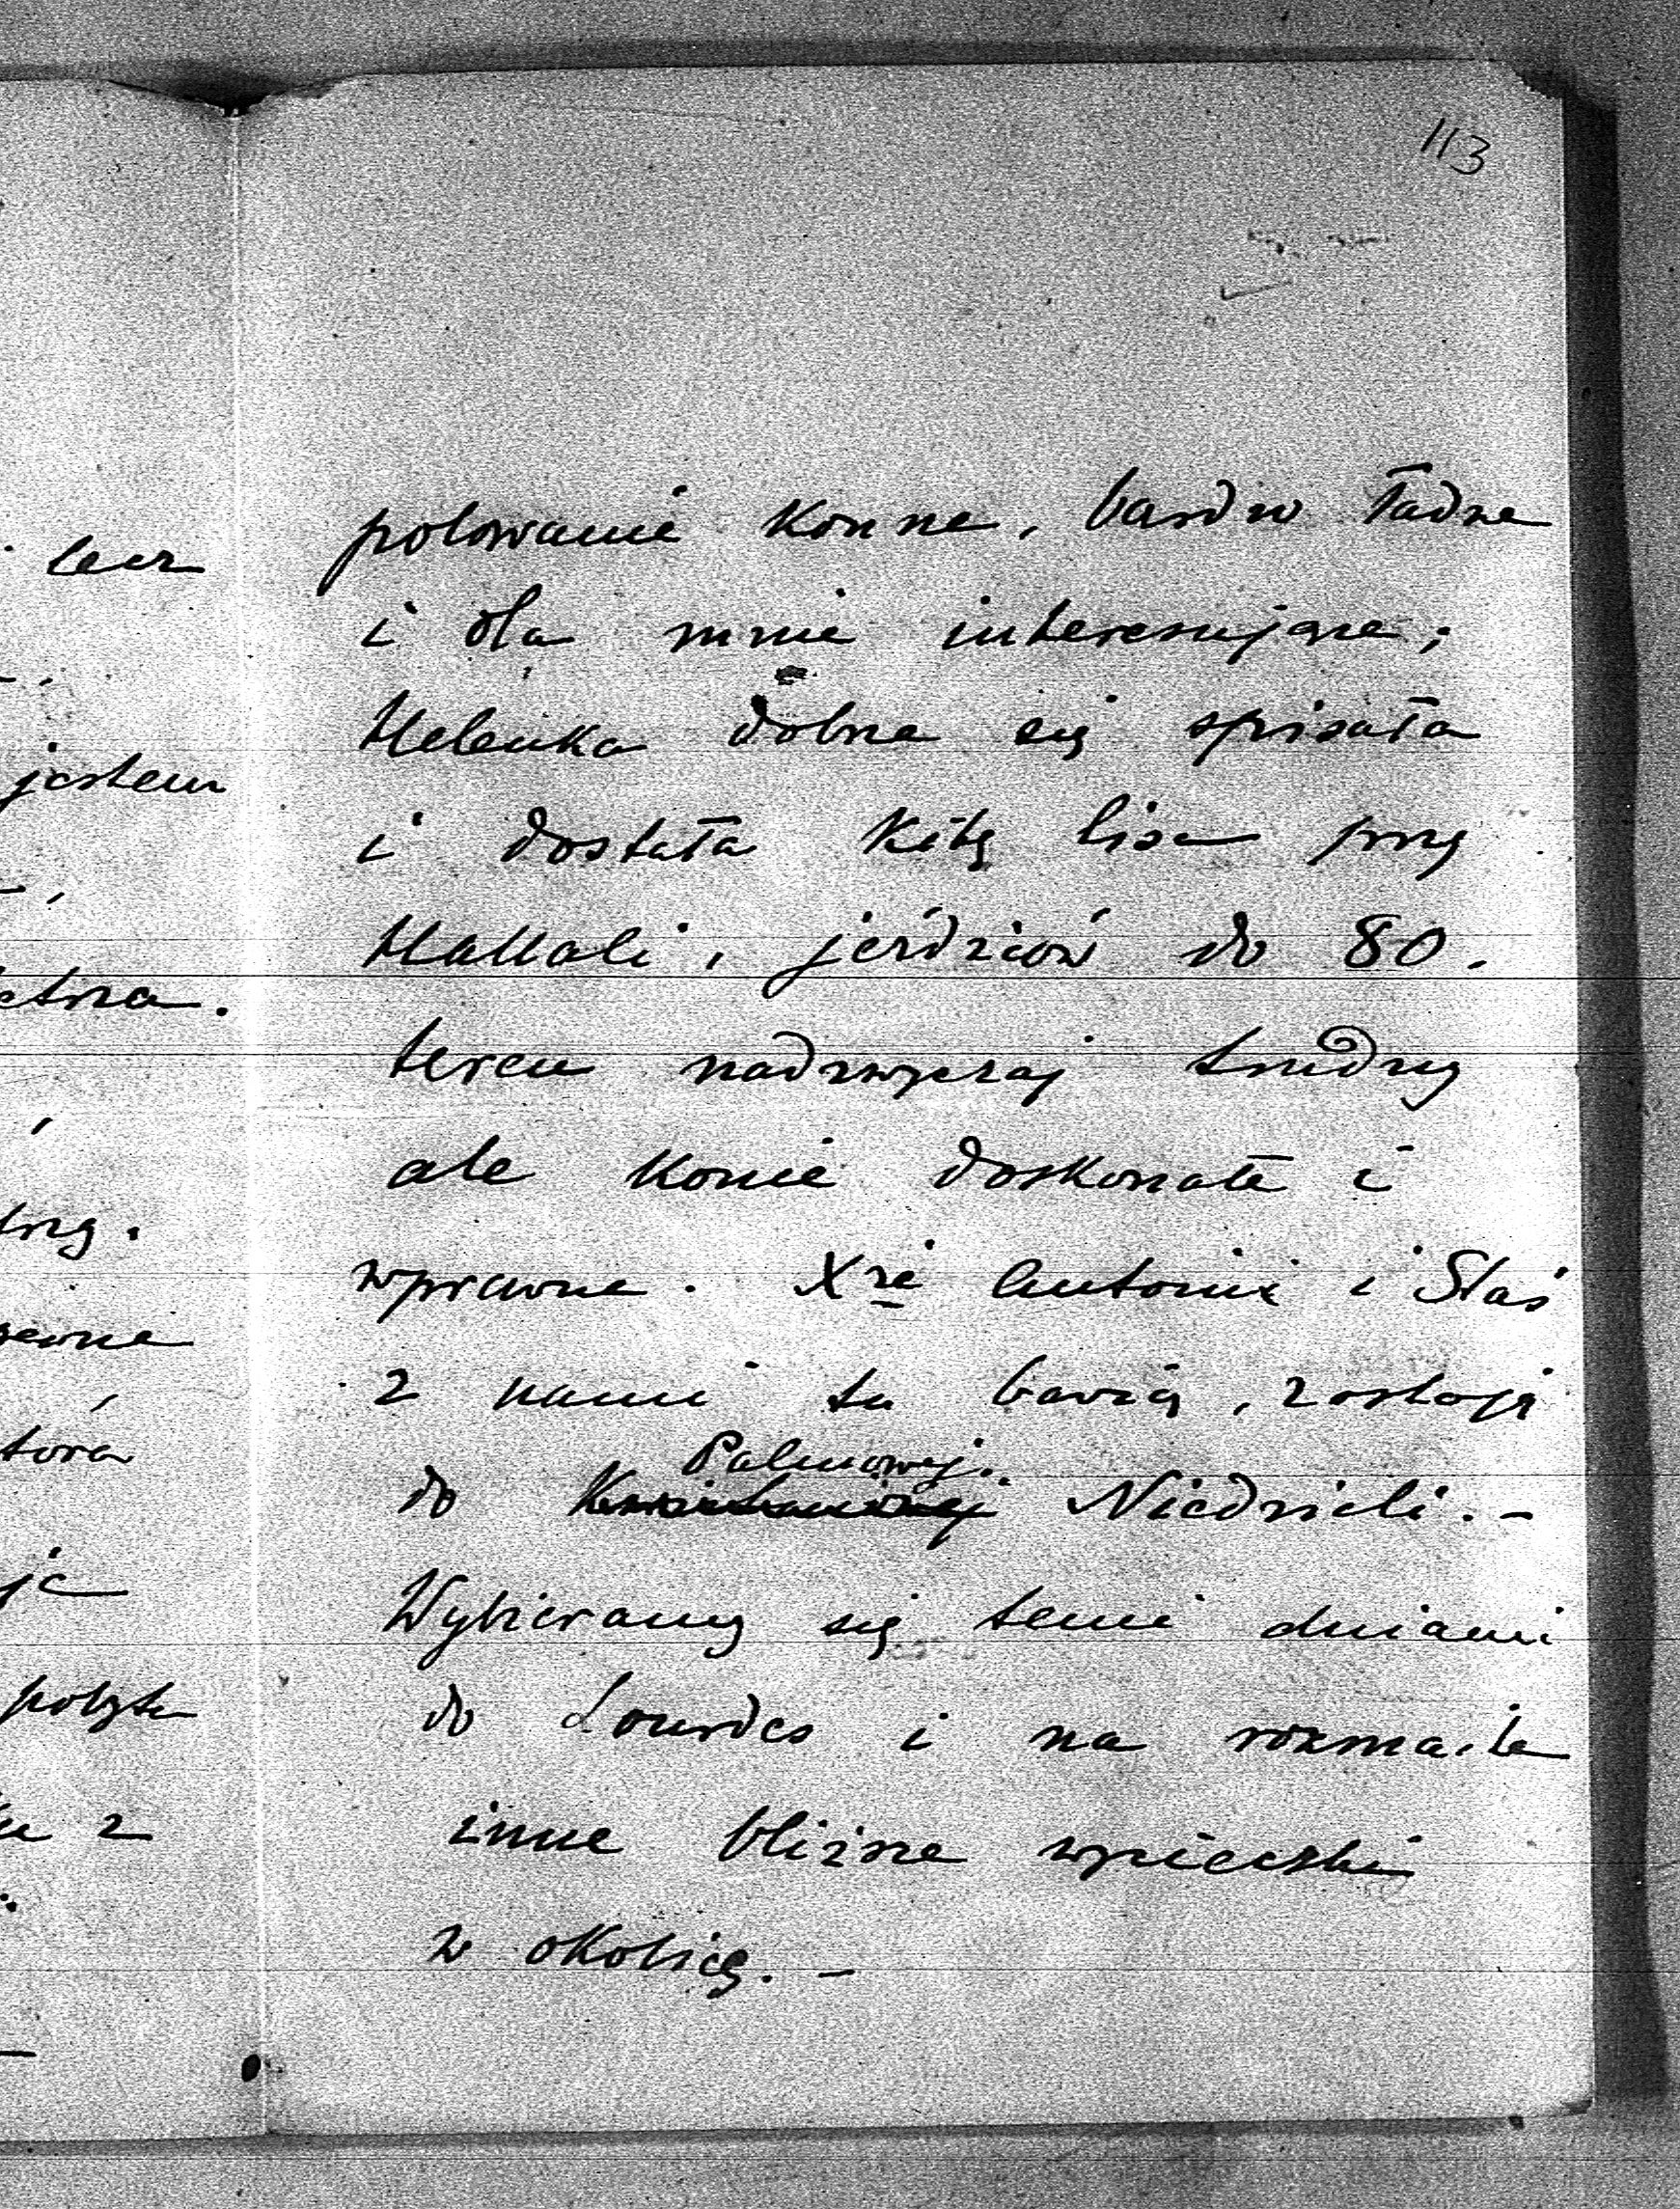 113
polowanie konne, bardzo ładne
i dla mnie interesujące;
Helenka dobrze się spisała
i dostała kitę lisa przy
Hallali, jeźdźców do 80.
teren nadzwyczaj trudny
ale konie doskonałe i
wprawne. Xże Antonix i Staś
z nami tu bawią, zostają
Palmowej
do Niedzieli. -
Wybieramy się temi dniami
do Lourdes i na rozmaite
inne bliższe wycieczki
w okolicę. -
lecz
jestem
etrza.
,
trzg.
tóra
je
pobytu
z